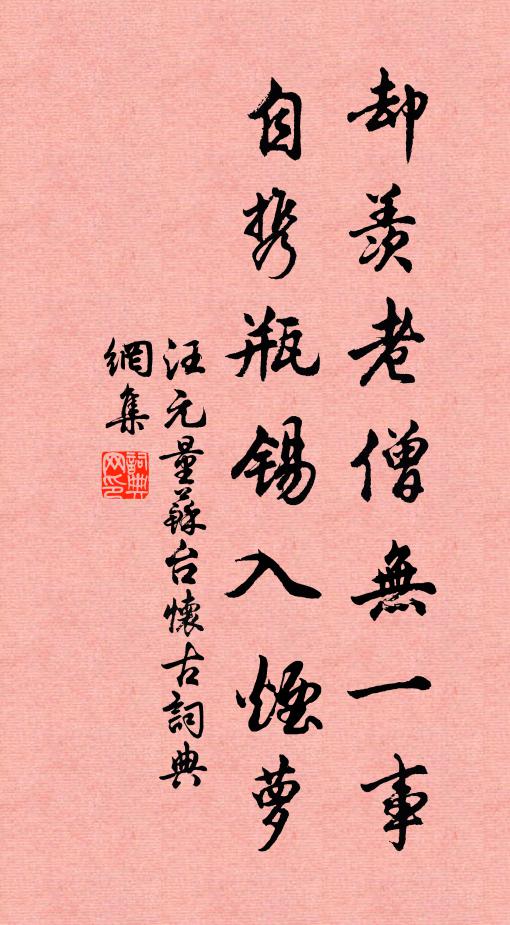 却羨老僧無一事
自携瓶錫入煙蘿
汪元量蘇台懷古詞典
網集
詞典
网印